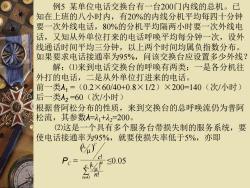 例5 某单位电话交换台有一台200门内线的总机。已
知在上班的八小时内，有20%的内线分机平均每四十分钟
要一次外线电话，80%的分机平均隔两小时要一次外线电
话，又知从外单位打来的电话呼唤平均每分钟一次，设外
线通话时间平均三分钟，以上两个时间均属负指数分布。
如果要求电话接通率为95%，问该交换台应设置多少外线？
解：⑴来到电话交换台的呼唤有两类：一是各分机往
外打的电话，二是从外单位打进来的电话。
前一类λ₁=（0.2×60/40+0.8×1/2）×200=140（次/小时）
后一类λ₂=60（次/小时）
根据普阿松分布的性质，来到交换台的总呼唤流仍为普阿
松流，其参数λ=λ₁+λ₂=200。
⑵这是一个具有多个服务台带损失制的服务系统，要
使电话接通率为95%，就要使损失率低于5%，亦即